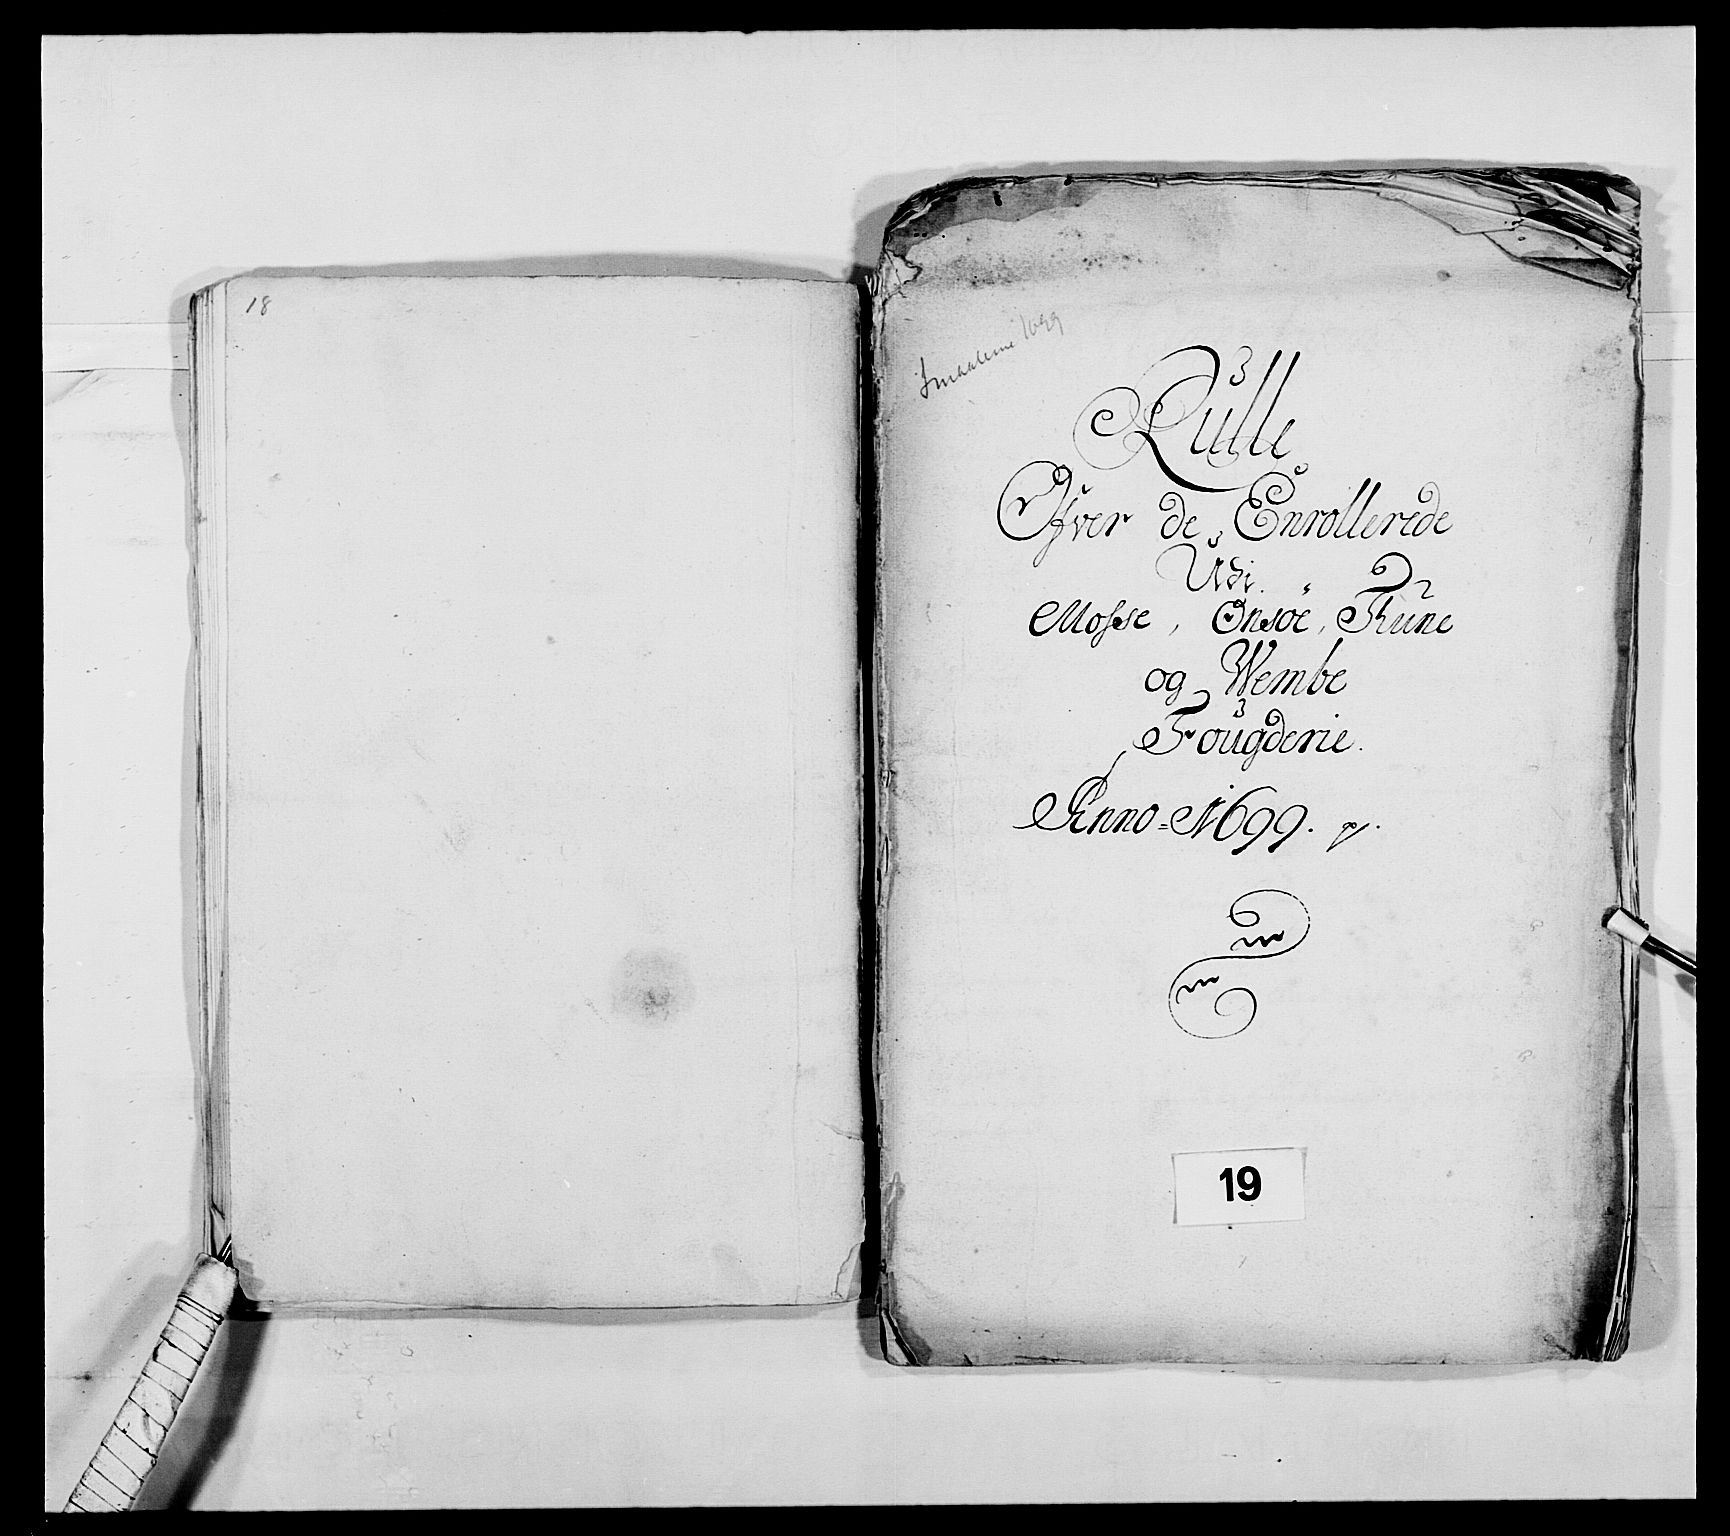 18
Smaalene 1699
Rulle
Ofver de Enrollerede
Udi
Mosse, Onsøe, Thune
og Wembe
Fougderie.
Anno = 1699. p.
19